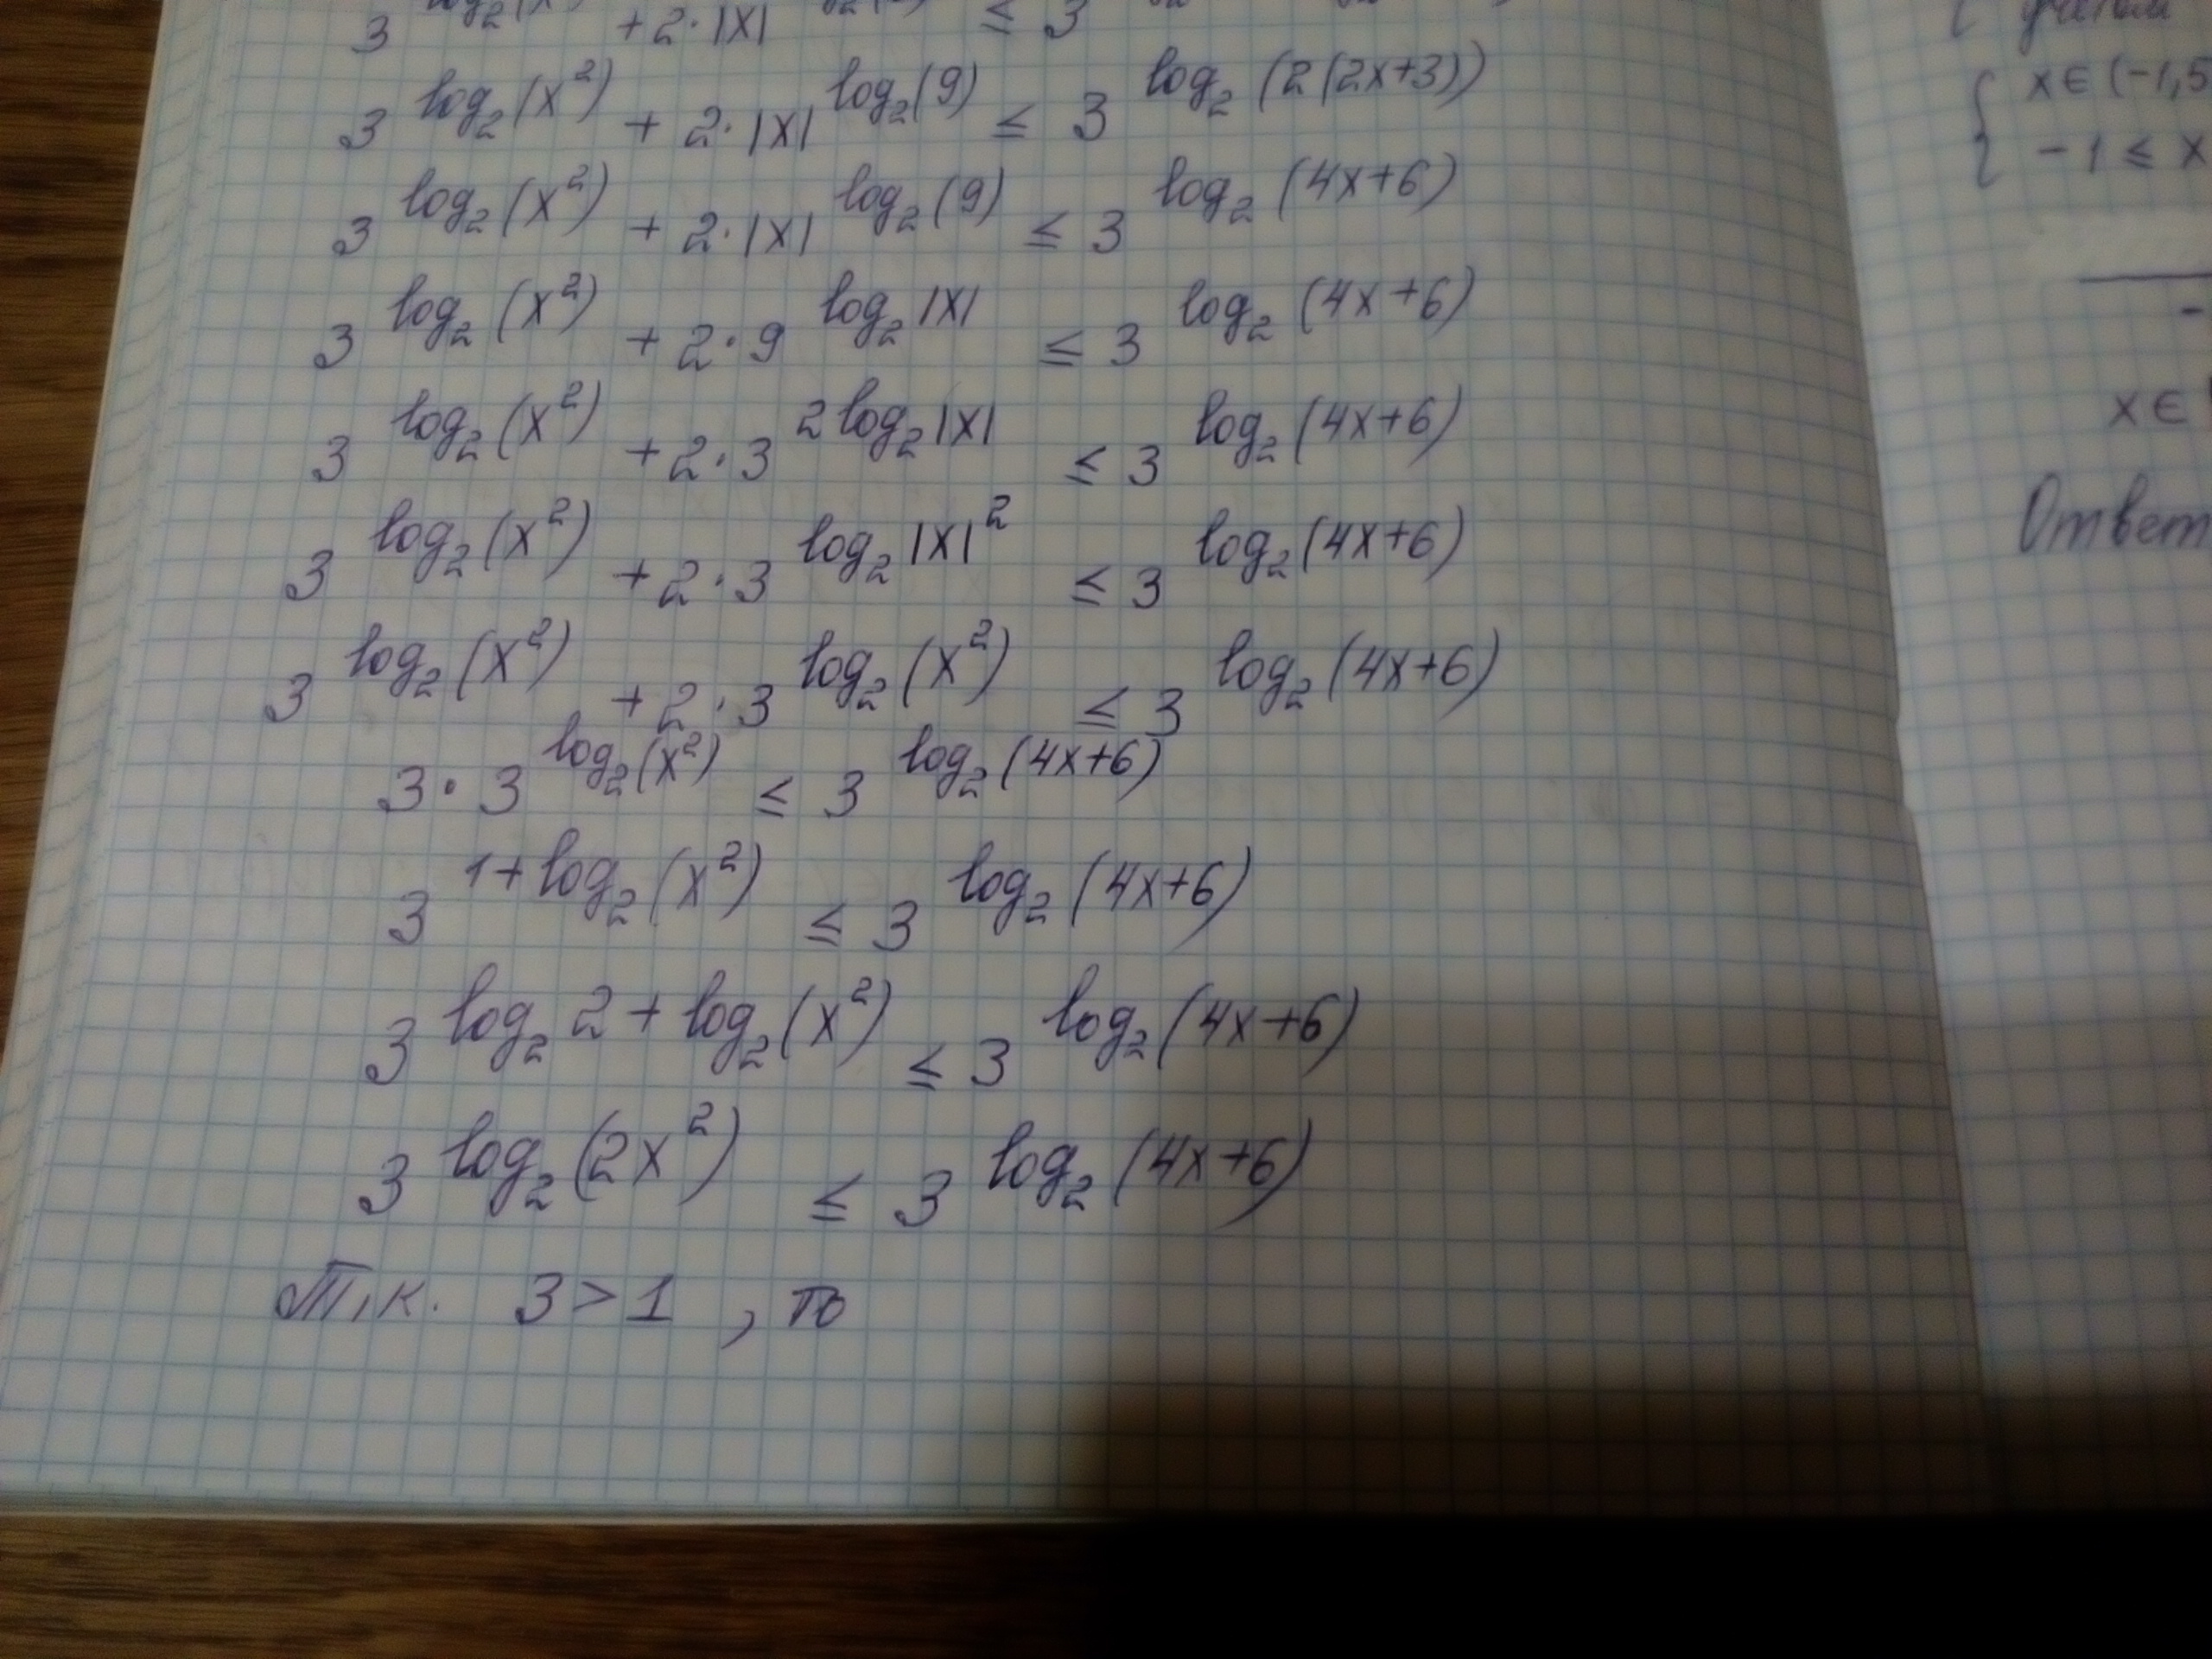 3^{log_2(x^2)} + 2·|x| ≤ 3
3^{log_2(x^2)} + 2·|x|^{log_2(9)} ≤ 3^{log_2(2(2x+3))}
3^{log_2(x^2)} + 2·|x|^{log_2(9)} ≤ 3^{log_2(4x+6)}
3^{log_2(x^2)} + 2·9^{log_2|x|} ≤ 3^{log_2(4x+6)}
3^{log_2(x^2)} + 2·3^{2log_2|x|} ≤ 3^{log_2(4x+6)}
3^{log_2(x^2)} + 2·3^{log_2|x|^2} ≤ 3^{log_2(4x+6)}
3^{log_2(x^2)} + 2·3^{log_2(x^2)} ≤ 3^{log_2(4x+6)}
3·3^{log_2(x^2)} ≤ 3^{log_2(4x+6)}
3^{1+log_2(x^2)} ≤ 3^{log_2(4x+6)}
3^{log_2 2+log_2(x^2)} ≤ 3^{log_2(4x+6)}
3^{log_2(2x^2)} ≤ 3^{log_2(4x+6)}
Т.к. 3>1, то
учетом
x∈(-1,5
-1≤x
-
x∈
Ответ